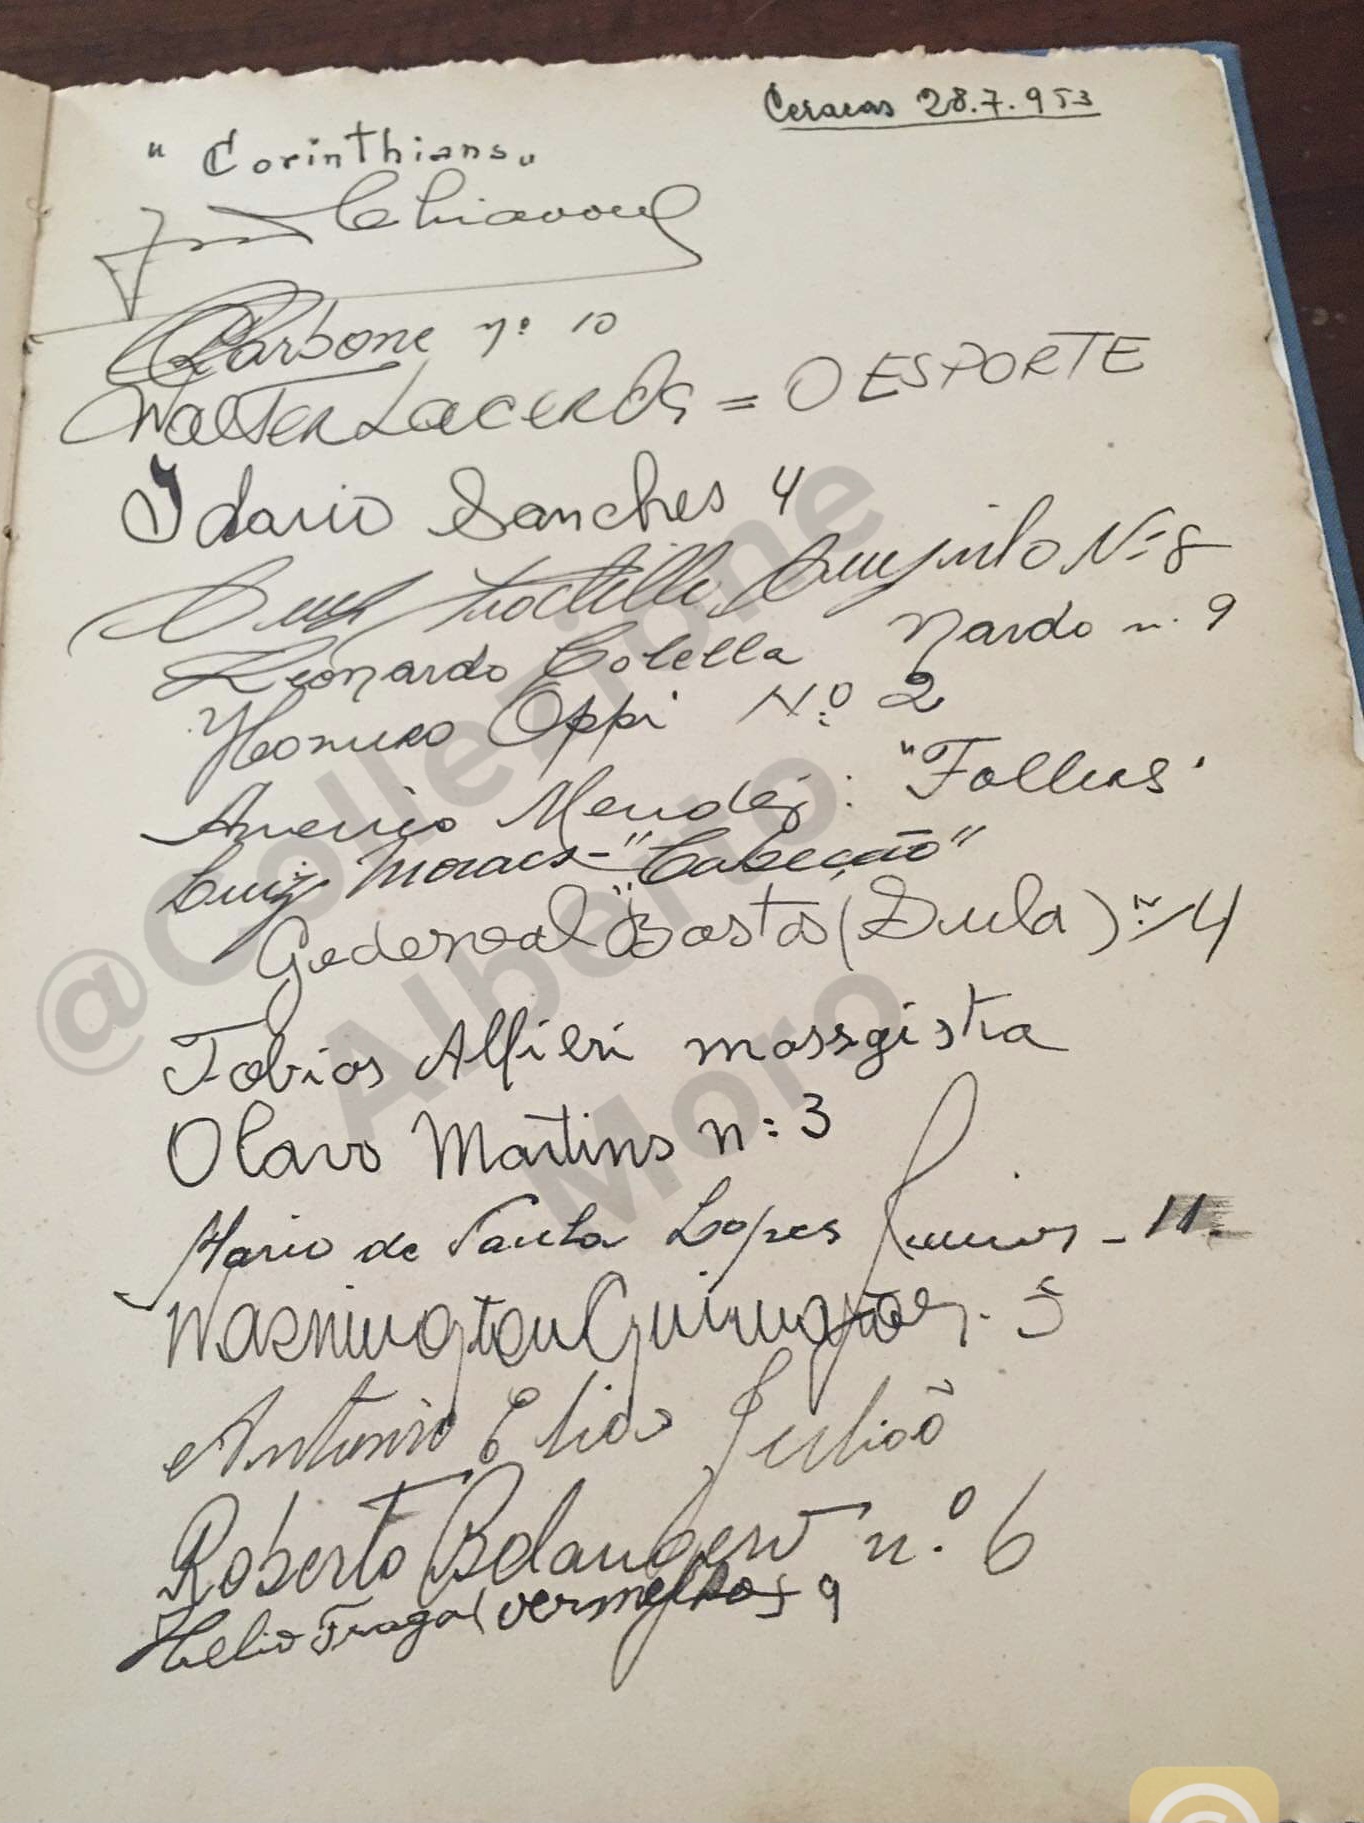 Ceracas 28.7.953
" Corinthians„
Carbone nº 10
WALTER LACERDA = O ESPORTE
Idario Sanches 4
Luiz Trochillo Luizinho Nº 8
Leonardo Colella Nardo n. 9
Homero Oppi Nº 2
Americo Mendes: "Follers"
Luiz Moraes - "Cabeção"
Gederval "Bastos (Gula) nº 4
Tobias Alfieri massgista
Olavo Martins nº 3
Mario de Paula Lopes Junior - 11.
Washington Guimarães. 5
Antonio Elias Julião
Roberto Belangero nº 6
Helio Fraga (vermelho) 9
@Collezione
Alberto
Moro